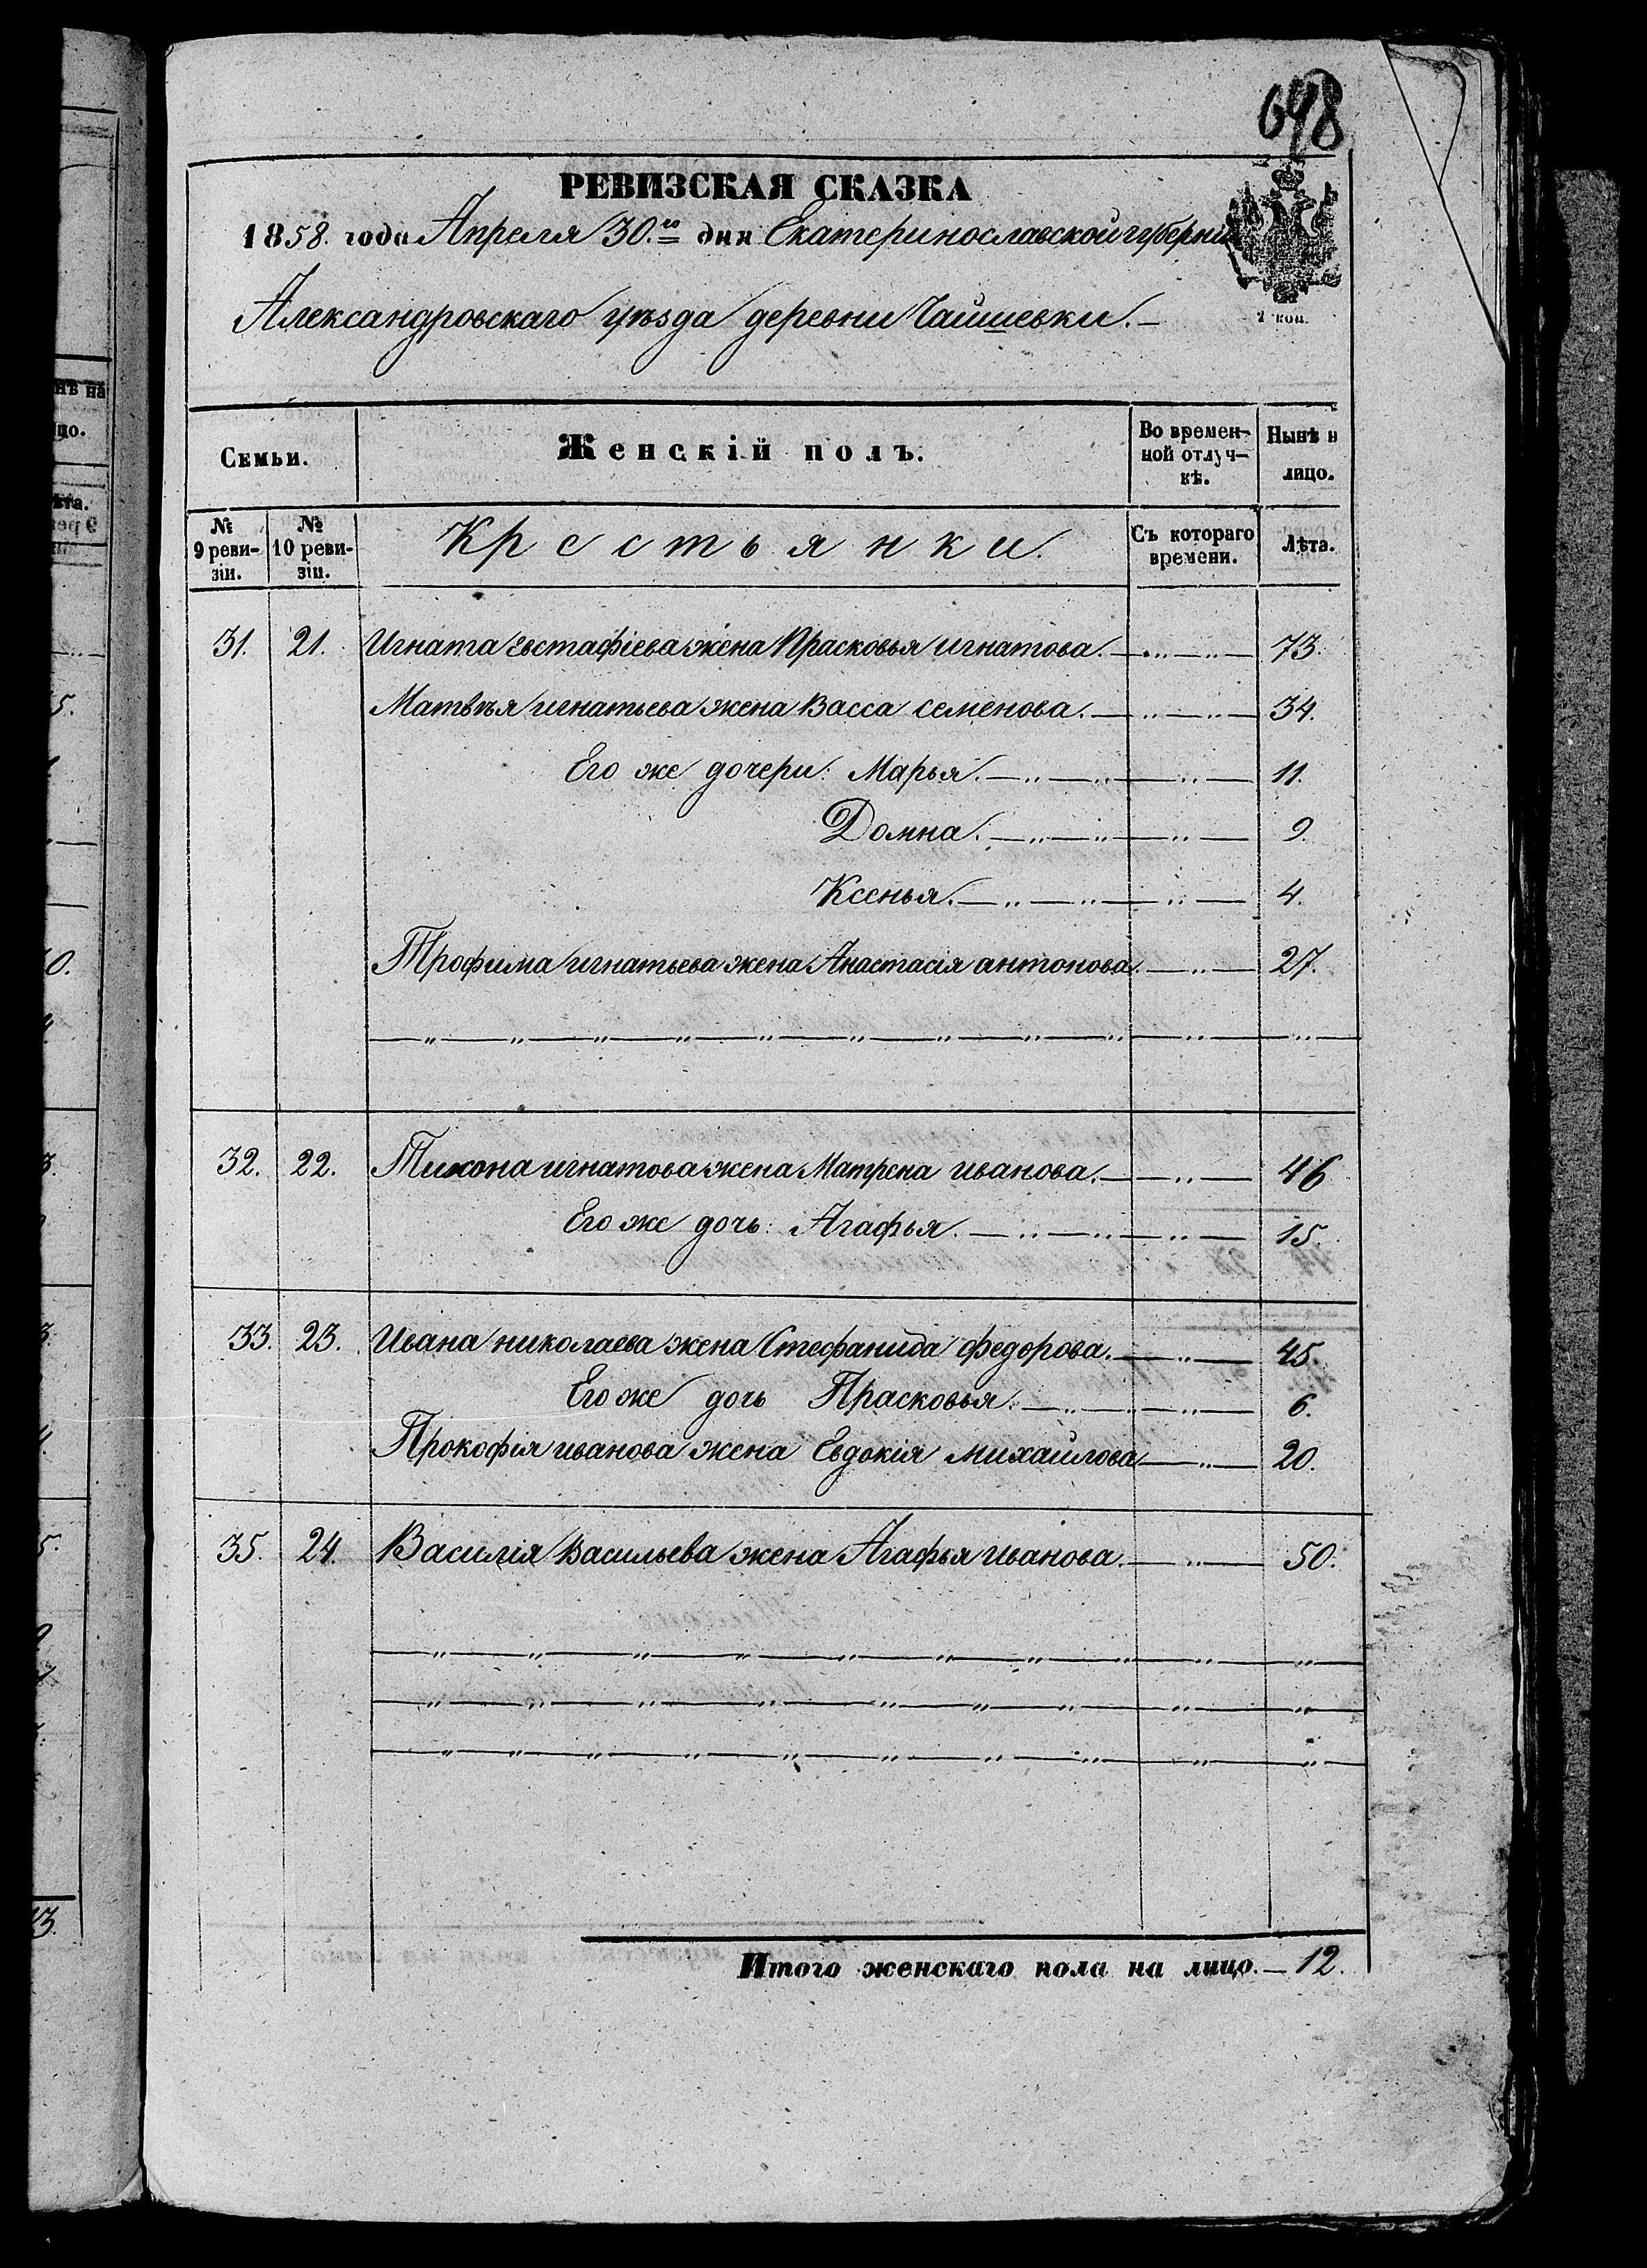 648
РЕВИЗСКАЯ СКАЗКА
1858. года Апреля 30.го дня Екатеринославской губерніи
Александровскаго уѣзда деревни Чаишевки.
2 коп.
Семьи.
Женскій полъ.
Во времен-
ной отлуч-
кѣ.
Нынѣ н
лицо.
№
9 реви-
зіи.
№
10 реви-
зіи.
Крестьянки.
Съ котораго
времени.
Лѣта.
31. 21. Игната Евстафіева жена Прасковья игнатова. 73.
Матвѣя игнатьева жена Васса семенова. 34.
Его же дочери: Марья. 11.
Домна. 9.
Ксенья. 4.
Трофима игнатьева жена Анастасія антонова. 27.
32. 22. Тихона игнатова жена Матрена иванова. 46
Его же дочь: Агафья. 15.
33. 23. Ивана николаева жена Стефанида федорова. 45.
Его же дочь Прасковья. 6.
Прокофія иванова жена Евдокія михайлова 20.
35. 24. Василія Васильева жена Агафья иванова. 50.
Итого женскаго пола на лицо. 12.